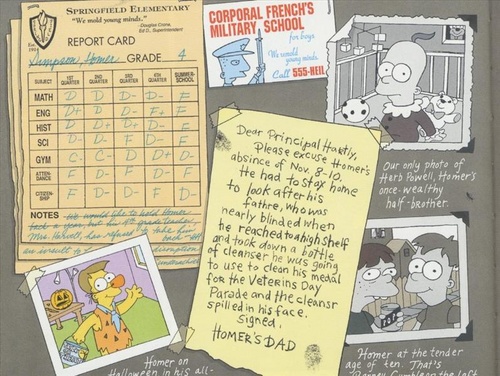 SPRINGFIELD ELEMENTARY
"We mold young minds."
-Douglas Crone,
Ed D., Superintendent
REPORT CARD
Simpson, Homer GRADE 4
SUBJECT 1ST QUARTER 2ND QUARTER 3RD QUARTER 4TH QUARTER SUMMER-SCHOOL
MATH D D D- D- F
ENG D+ D D- F+ F
HIST D D+ D+ D- E
SCI D- D- F D- F
GYM C- C- D D+ D-
ATTEN-DANCE F D- F D- F
CITIZEN-SHIP F D- F D- F
NOTES We would like to hold Homer
back a year, but his 4th grade teacher,
Mrs. has refused to take him
back
an insult to
CORPORAL FRENCH'S
MILITARY SCHOOL
for boys
We would
young minds.
Call 555-HEIL
Dear Principal Hartly,
Please excuse Homer's
absince of Nov. 8-10.
He had to stay home
to look after his
fathre, who was
nearly blinded when
he reached to a high shelf
and took down a bottle
of cleanser he was going
to use to clean his medal
for the Veterins Day
Parade and the cleansr
spilled in his face.
Signed,
HOMER'S DAD
Our only photo of
Herb Powell, Homer's
once-wealthy
half-brother.
Homer on
Halloween in his all-
Homer at the tender
age of ten. That's
Barney Gumble on the left